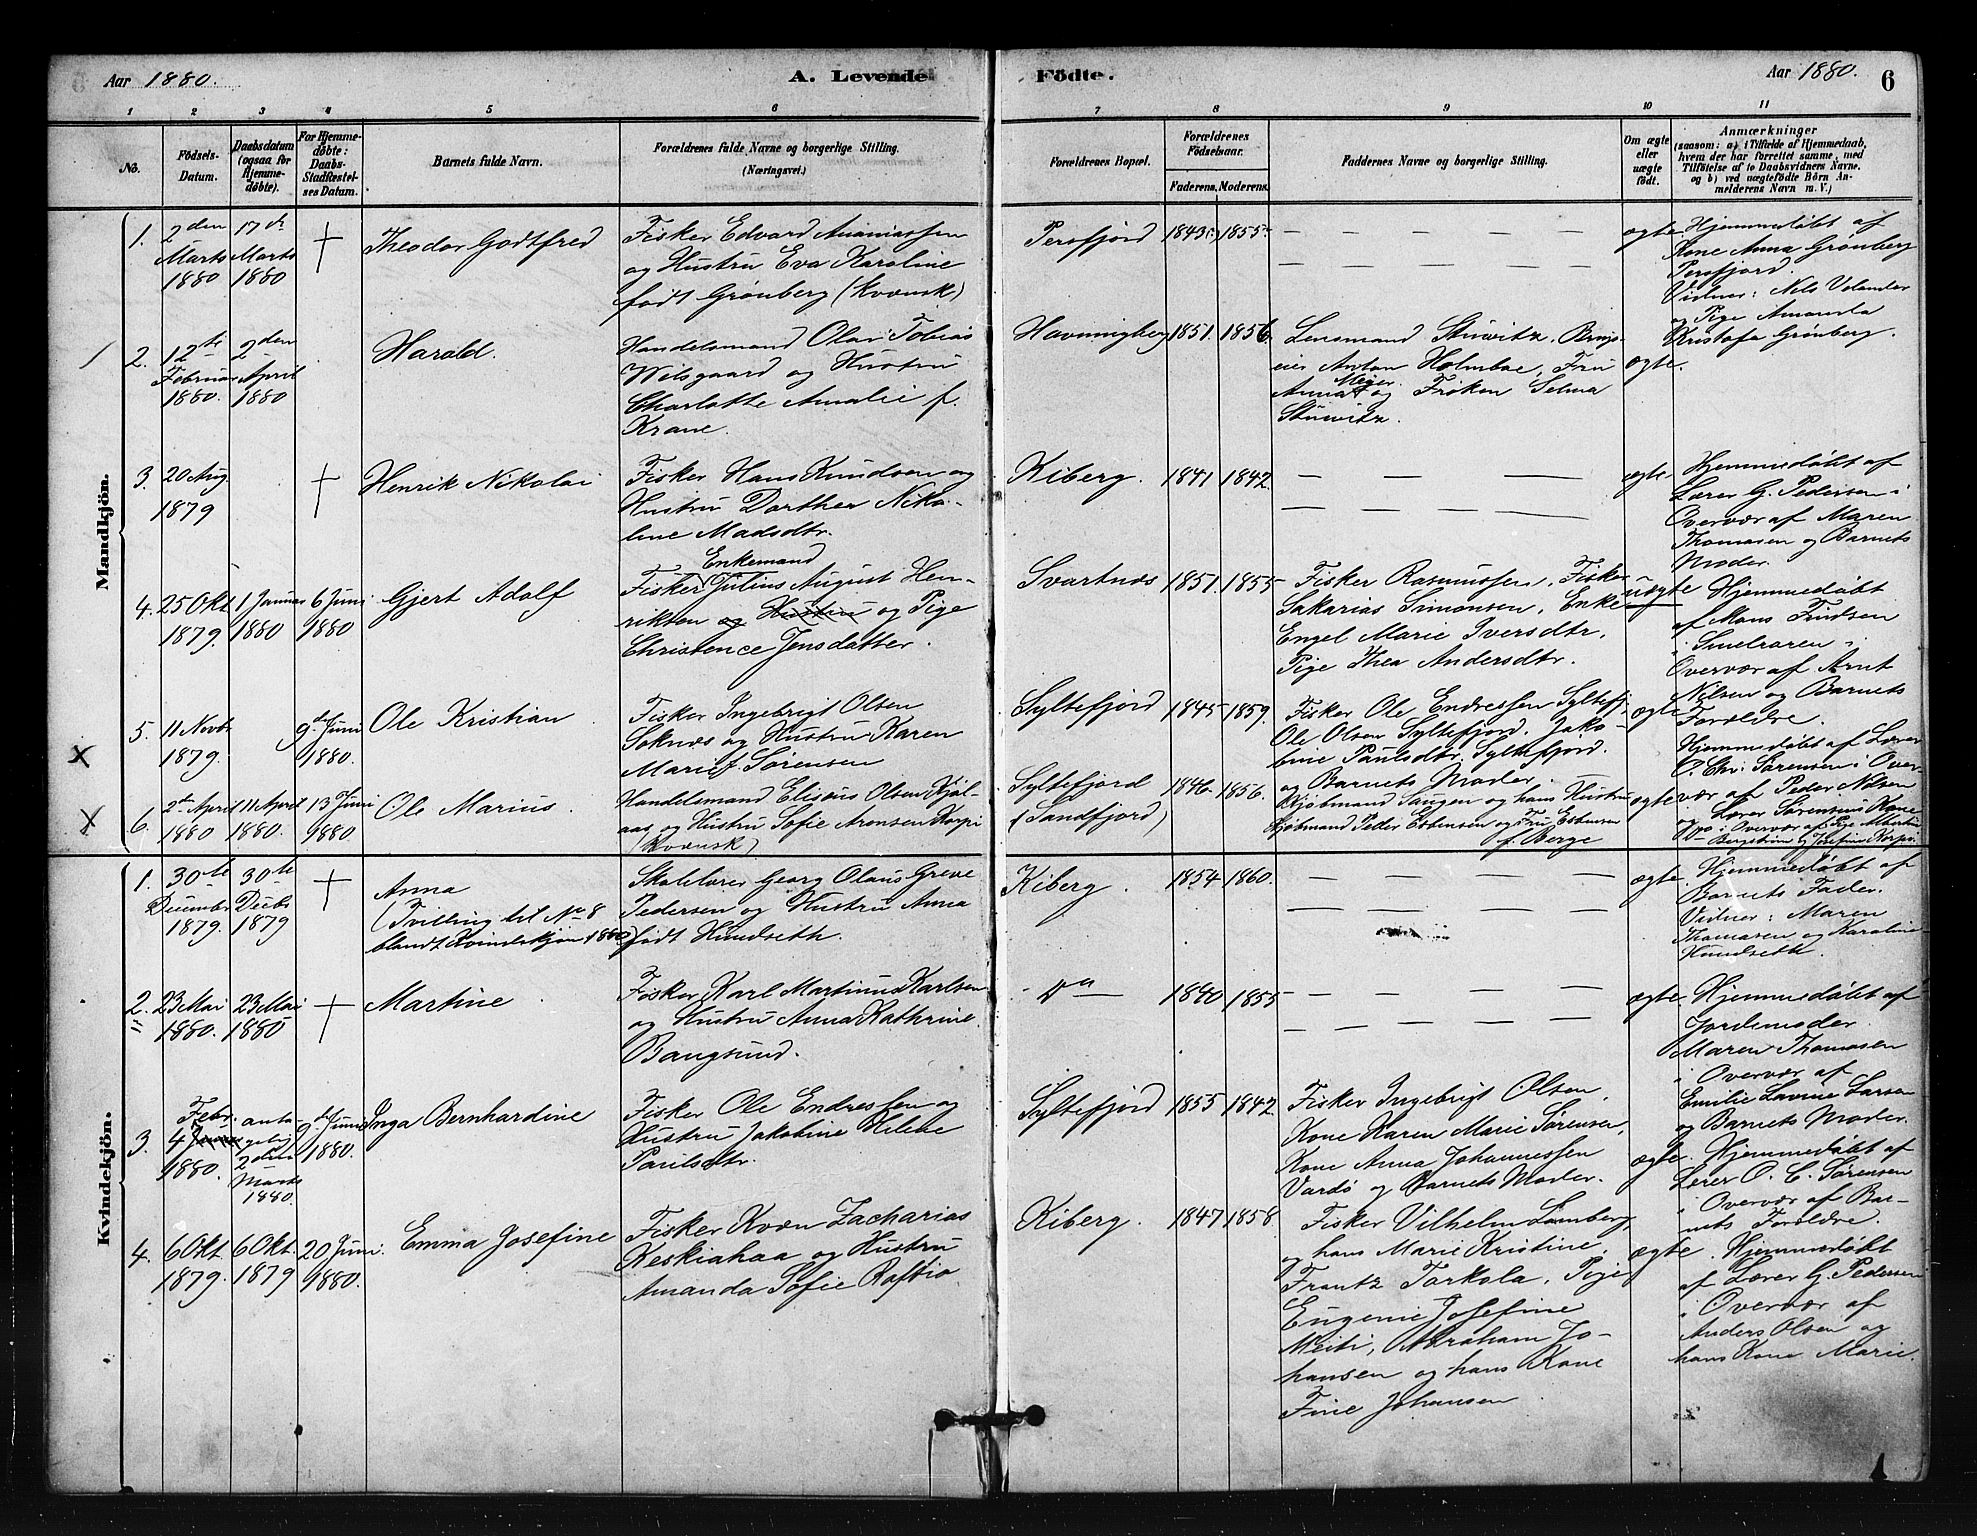 Aar 1880. A. Levende Födte. Aar 1880. 6
1 2 3 4 5 6 7 8 9 10 11
No.
Födsels-
Datum.
Daabsdatum
(ogsaa for
Hjemme-
döbte).
For Hjemme-
döbte:
Daabs-
Stadfæstel-
ses Datum.
Barnets fulde Navn.
Forældrenes fulde Navne og borgerlige Stilling.
(Næringsvei.)
Forældrenes Bopæl.
Forældrenes
Födselsaar.
Faderens. Moderens.
Faddernes Navne og borgerlige Stilling.
Om ægte
eller
uægte
födt.
Anmærkninger
(saasom: a) i Tilfælde af Hjemmedaab,
hvem der har forrettet samme, med
Tilföielse af to Daabsvidners Navne.
og b) ved uægtefödte Börn An-
melderens Navn m. V.)
Mandkjön.
1.
2den
Marts
1880
17de
Marts
1880
†
Theodor Godtfred
Fisker Edvard Ananiassen
og Hustru Eva Karoline
født Grønberg (kvænsk)
Persfjord
1843
1855
ægte
Hjemmedøbt af
Kone Anna Grønberg
Persfjord.
Vidner: Nils Velander
og Pige Amanda
Kristofa Grønberg.
2.
12te
Februar
1880.
2den
April
1880
Harald.
Handelsmand Olai Tobias
Wilsgaard og Hustru
Charlotte Amalie f.
Krane.
Havningberg
1851.
1856.
Lensmand Stüwitz. Brugs-
eier Anton Holmboe, Fru
Anna Meyer og Frøken Selma
Stüwitz
ægte.
3.
20 Aug
1879
†
Henrik Nikolai
Fisker Hans Knudsen og
Hustru Dorthea Niko-
line Madsdtr.
Kiberg.
1841
1842.
ægte
Hjemmedøbt af
Lærer G. Pedersen i
Overvær af Maren
Thomasen og Barnets
Moder.
4.
25 Okt
1879.
1 Januar
1880
6 Juni
1880
Gjert Adolf
Enkemand
Fisker Julius August Hen-
riksen og Hustru og Pige
Christence Jensdatter.
Svartnæs
1851.
1855
Fisker Rasmussen, Fisker
Sakarias Simonsen, Enke
Engel Marie Iversdtr.
Pige Thea Andersdtr.
uægte
Hjemmedøbt
af Mons
i
Overvær af Arnt
Nilsen og Barnets
Forældre.
5.
11 Novbr
1879.
9de Juni
1880.
Ole Kristian
Fisker Ingebrigt Olsen
Soknæs og Hustru Karen
Marie f. Sørensen
Syltefjord
1845
1859.
Fisker Ole Endressen Syltefj.
Ole Olsen Syltefjord. Jako-
bine Paulsdtr. Syltefjord.
og Barnets Moder.
ægte
Hjemmedøbt af Lærer
O. Chr. Sørensen i Over-
vær af Peder Nilsen
og Lærer Sørensens Kone
6.
2den April
1880
11 April
1880.
13 Juni
1880.
Ole Marius.
Handelsmand Elisæus Olsen
og Hustru Sofie Aronsen Korpi
(Kvænsk)
Syltefjord
(Sandfjord)
1846
1856.
Kjøbmand og hans Hustru
Kjøbmand Peder Esbensen og Fru Esbensen
f. Berge
ægte
i Overvær af Pige Albertine
Bergstrøm og Josefine Korpi.
Kvindekjön.
1.
30te
Decembr
1879.
30te
Decbr
1879
†
Anna
(Tvilling til No 8
blandt Kvindekjøn 1880)
Skolelærer Georg Olaus Greve
Pedersen og Hustru Anna
født Hundseth.
Kiberg.
1854
1860.
ægte
Hjemmedøbt af
Barnets Fader.
Vidner: Maren
Thomasen og Karoline
Hundseth.
2.
23 Mai
1880.
23 Mai
1880
†
Martine
Fisker Karl Martinus Karlsen
og Hustru Anna Kathrine
Bangsund.
Do
1840
1855
ægte.
Hjemmedøbt af
Jordemoder
Maren Thomasen
i Overvær af
Emilie Lavine Larsen
og Barnets Moder.
3.
Febr.
4
1880.
anta
gelig
2den
Marts
1880.
9de Juni
1880.
Inga Bernhardine
Fisker Ole Endressen og
Hustru Jakobine Helene
Paulsdtr.
Syltefjord
1855
1842
Fisker Ingebrigt Olsen,
Kone Karen Marie Sørensen,
Kone Anna Johannessen
Vardø og Barnets Moder.
ægte
Hjemmedøbt af
Lærer O. C. Sørensen
i Overvær af Bar-
nets Forældre.
4.
6 Okt
1879.
6 Okt.
1879
20 Juni
1880.
Emma Josefine
Fisker Kvæn Zacharias
Keskiahaa og Hustru
Amanda Sofie Raftio.
Kiberg.
1847
1858.
Fisker Vilhelm Lamberg,
og hans Marie Kristine,
Frantz Torkola. Pige
Eugenie Josefine
Meiti, Abraham Jo-
hansen og hans Kone
Fine Johansen
ægte
Hjemmedøbt
af Lærer G. Pedersen
i Overvær af
Anders Olsen og
hans Kone Marie.